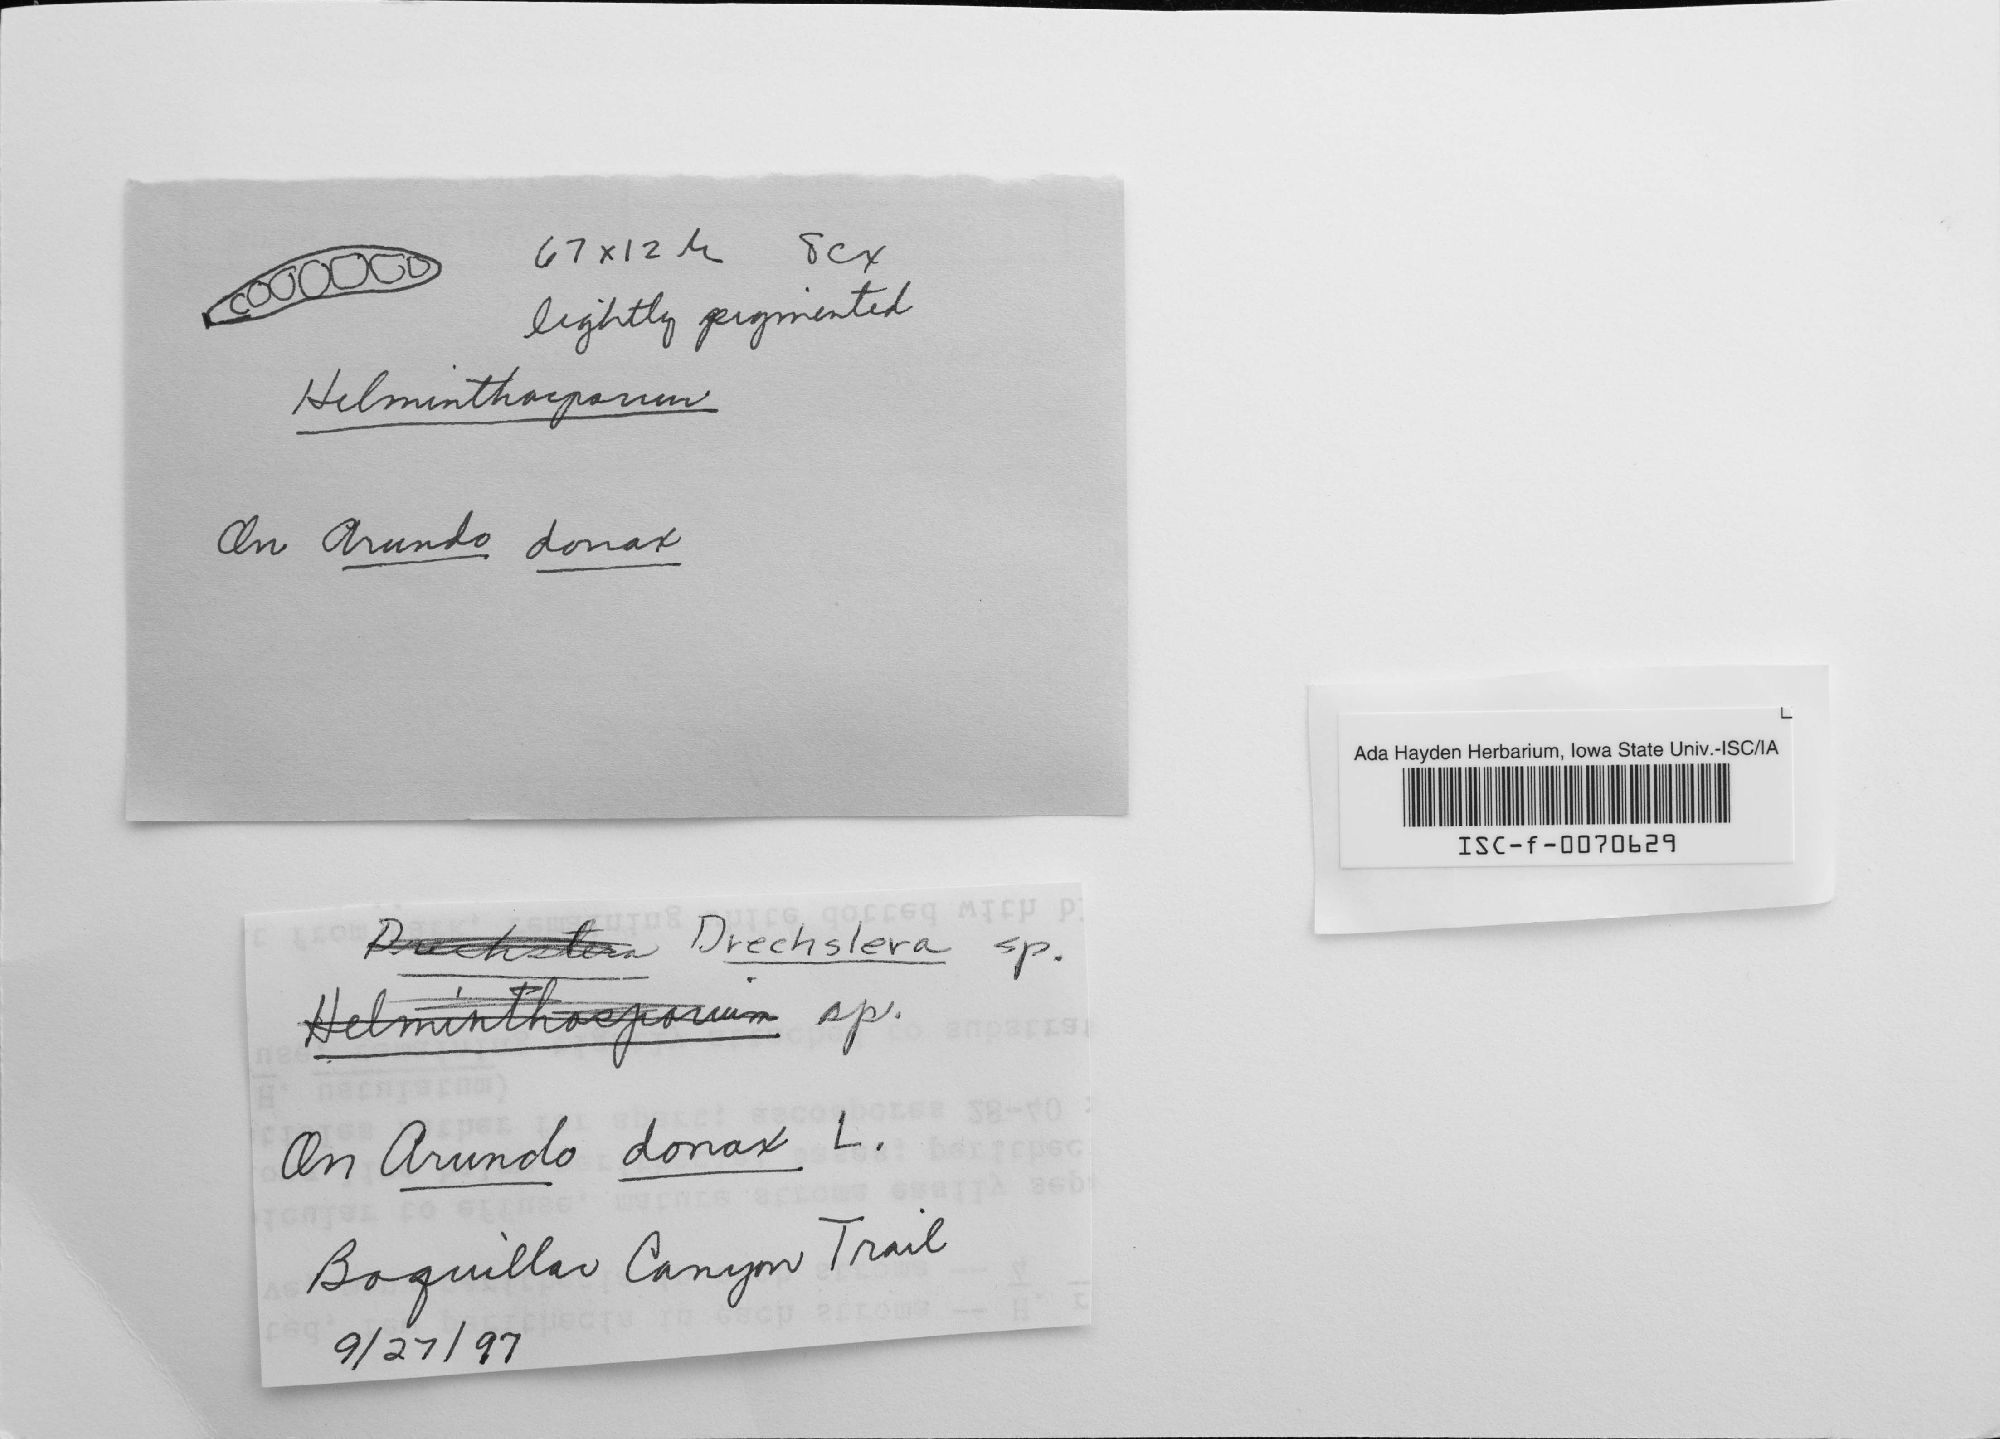 67 x 12 µ 8cx
lightly pigmented
Helminthosporium
On Arundo donax
Ada Hayden Herbarium, Iowa State Univ.-ISC/IA
ISC-f-0070629
Drechslera Drechslera sp.
Helminthosporium sp.
On Arundo donax L.
Boquillas Canyon Trail
9/27/97